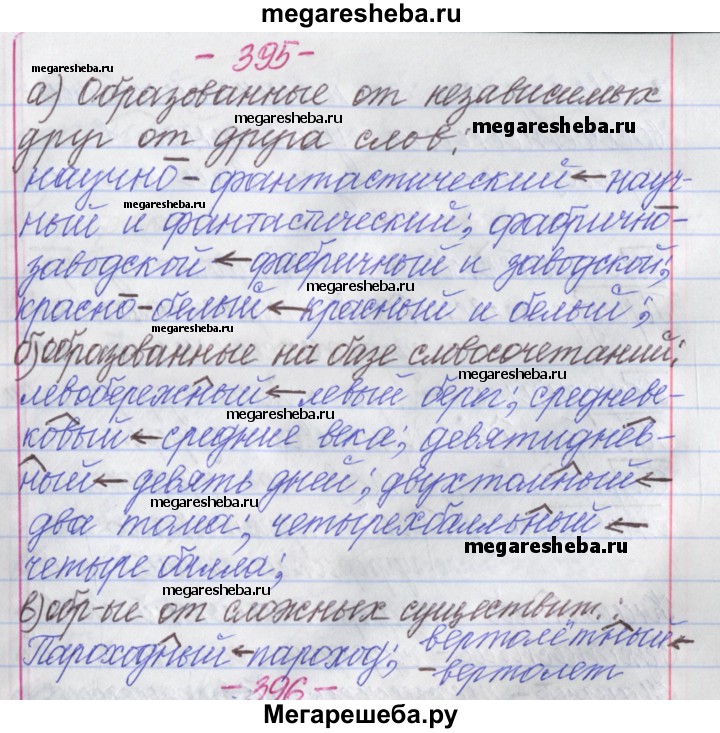 megaresheba.ru
- 395 -
megaresheba.ru
а) Образованные от независимых
megaresheba.ru
megaresheba.ru
друг от друга слов:
научно-фантастический ← науч-
megaresheba.ru
ный и фантастический; фабрично-
заводской ← фабричный и заводской;
megaresheba.ru
красно-белый ← красный и белый;
megaresheba.ru
б) образованные на базе словосочетаний:
megaresheba.ru
левобережный ← левый берег; средневе-
megaresheba.ru
ковый ← средние века; девятиднев-
ный ← девять дней; двухтомный ←
megaresheba.ru
два тома; четырехбалльный ←
megaresheba.ru
четыре балла;
megaresheba.ru
в) обр-ые от сложных существит.:
Пароходный ← пароход; вертолётный ←
- вертолет
- 396 -
Мегарешеба.ру